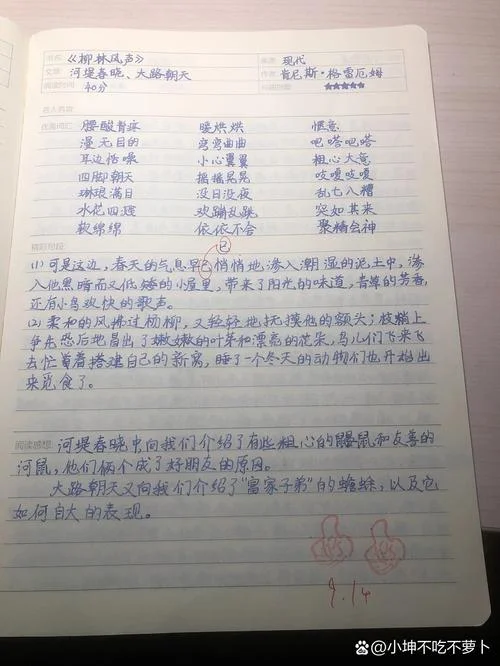 书名 《柳林风声》 朝代 现代
文章 河堤春晓、大路朝天 作者 肯尼斯·格雷厄姆
阅读时间 40分 ★★★★★
优美词汇 腰酸背疼 暖烘烘 惬意
漫无目的 弯弯曲曲 吧嗒吧嗒
耳边恬噪 小心翼翼 粗心大意
四脚朝天 摇摇晃晃 吱嘎吱嘎
琳琅满目 没日没夜 乱七八糟
水花四溅 欢蹦乱跳 突如其来
软绵绵 依依不舍 聚精会神
精彩句段
已
(1) 可是这边，春天的气息早已悄悄地渗入潮湿的泥土中，渗
入他黑暗而又低矮的小屋里，带来了阳光的味道，青草的芳香，
还有小鸟欢快的歌声。
(2) 柔和的风拂过杨柳，又轻轻地抚摸他的额头；枝梢上
争先恐后地冒出了嫩嫩的叶芽和漂亮的花朵，鸟儿们飞来飞
去忙着搭建自己的新窝，睡了一个冬天的动物们也开始出
来觅食了。
阅读感想: 河堤春晓中向我们介绍了有些粗心的鼹鼠和友善的
河鼠，他们俩个成了好朋友的原因。
大路朝天又向我们介绍了"富家子弟"的蟾蜍，以及它
如何自大的表现。
9.14
@小坤不吃不萝卜